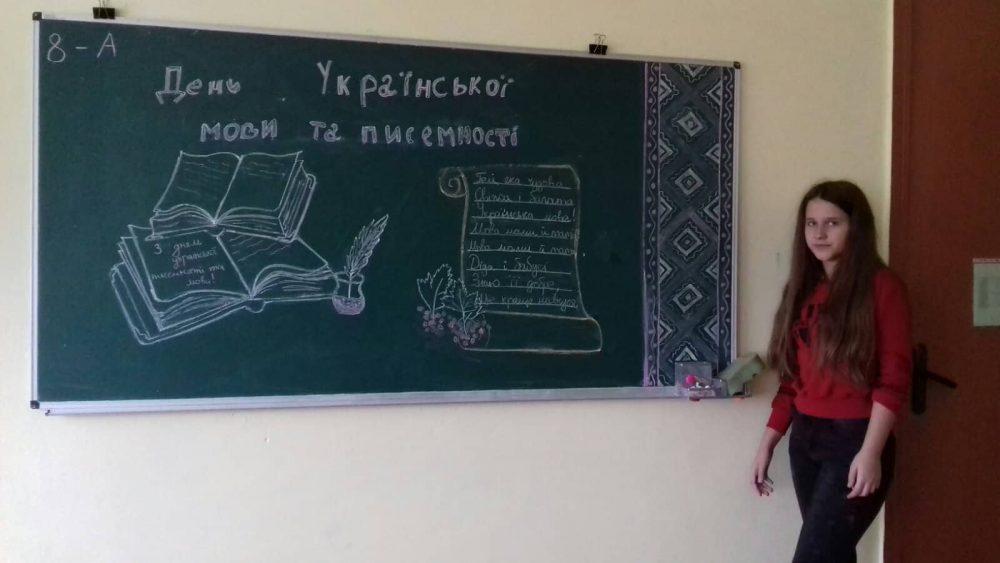 8 - А
День Української
мови та писемності
З днем
української
писемності та
мови!
Гей, яка чудова
Світла і багата
Українська мова!
Мова мами й тата
Мова мами й тата
Діда і бабусі
Знаю її добре
Ще краще навчуся